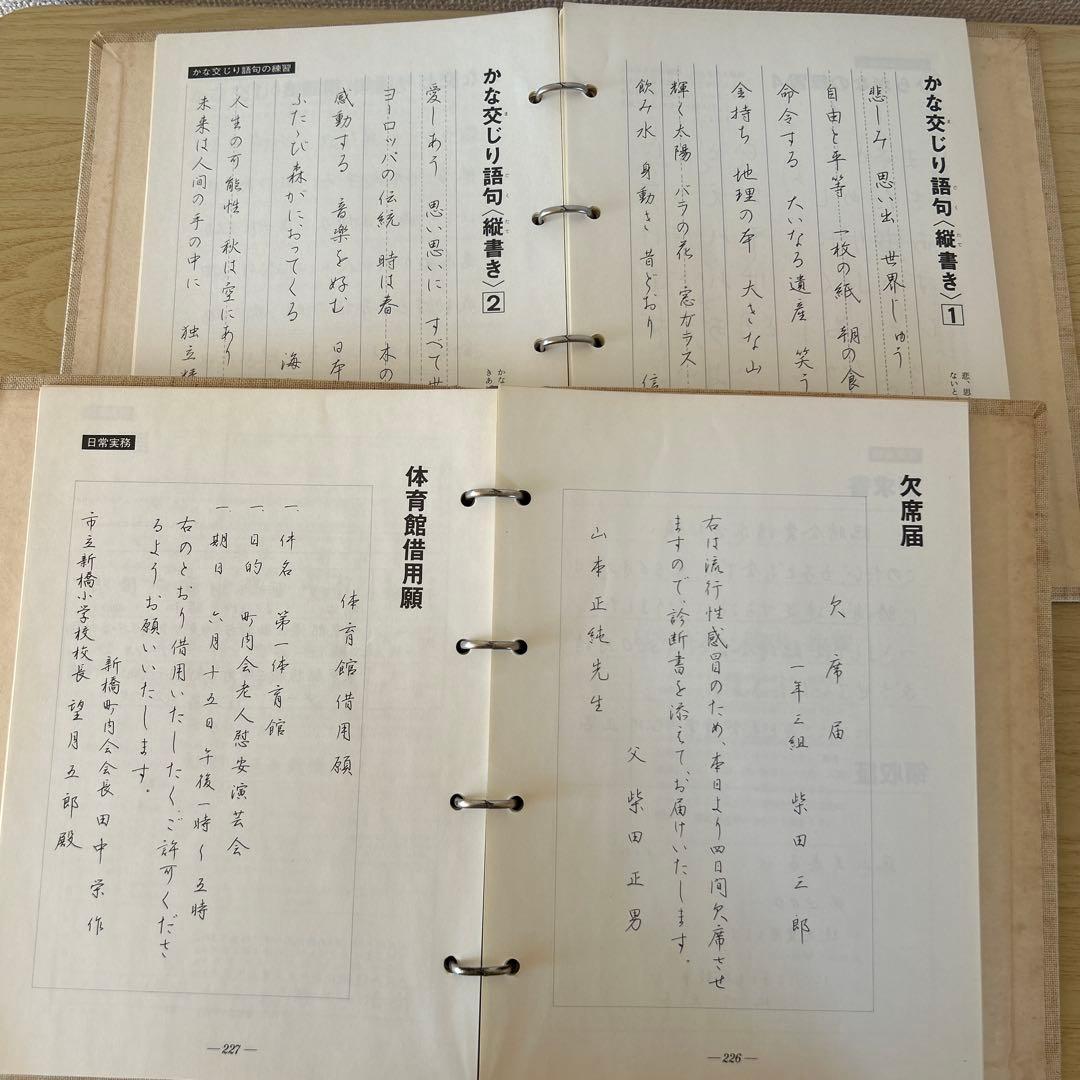 かな交じり語句〈縦書き〉1
悲しみ 思い出 世界じゅう
自由と平等 一枚の紙 朝の食
命令する 大いなる遺産 笑う
金持ち 地理の本 大きな山
輝く太陽 バラの花 窓ガラス
飲み水 身動き 昔どおり 信
かな交じり語句の練習
かな交じり語句〈縦書き〉2
愛しあう 思い思いに すべて世
ヨーロッパの伝統 時は春 木の
感動する 音楽を好む 日本
ふたゝび森がにおってくる 海
人生の可能性 秋は空にあり
未来は人間の手の中に 独立精
欠席届
欠席届
一年三組 柴田三郎
右は流行性感冒のため、本日より四日間欠席させ
ますので、診断書を添えて、お届けいたします。
父 柴田正男
山本正純先生
—226—
日常実務
体育館借用願
体育館借用願
一、件名 第一体育館
一、目的 町内会老人慰安演芸会
一、期日 六月十五日 午後一時〜五時
右のとおり借用いたしたく、ご許可くださ
るよう お願いいたします。
新橋町内会会長 田中栄作
市立新橋小学校校長 望月五郎殿
—227—